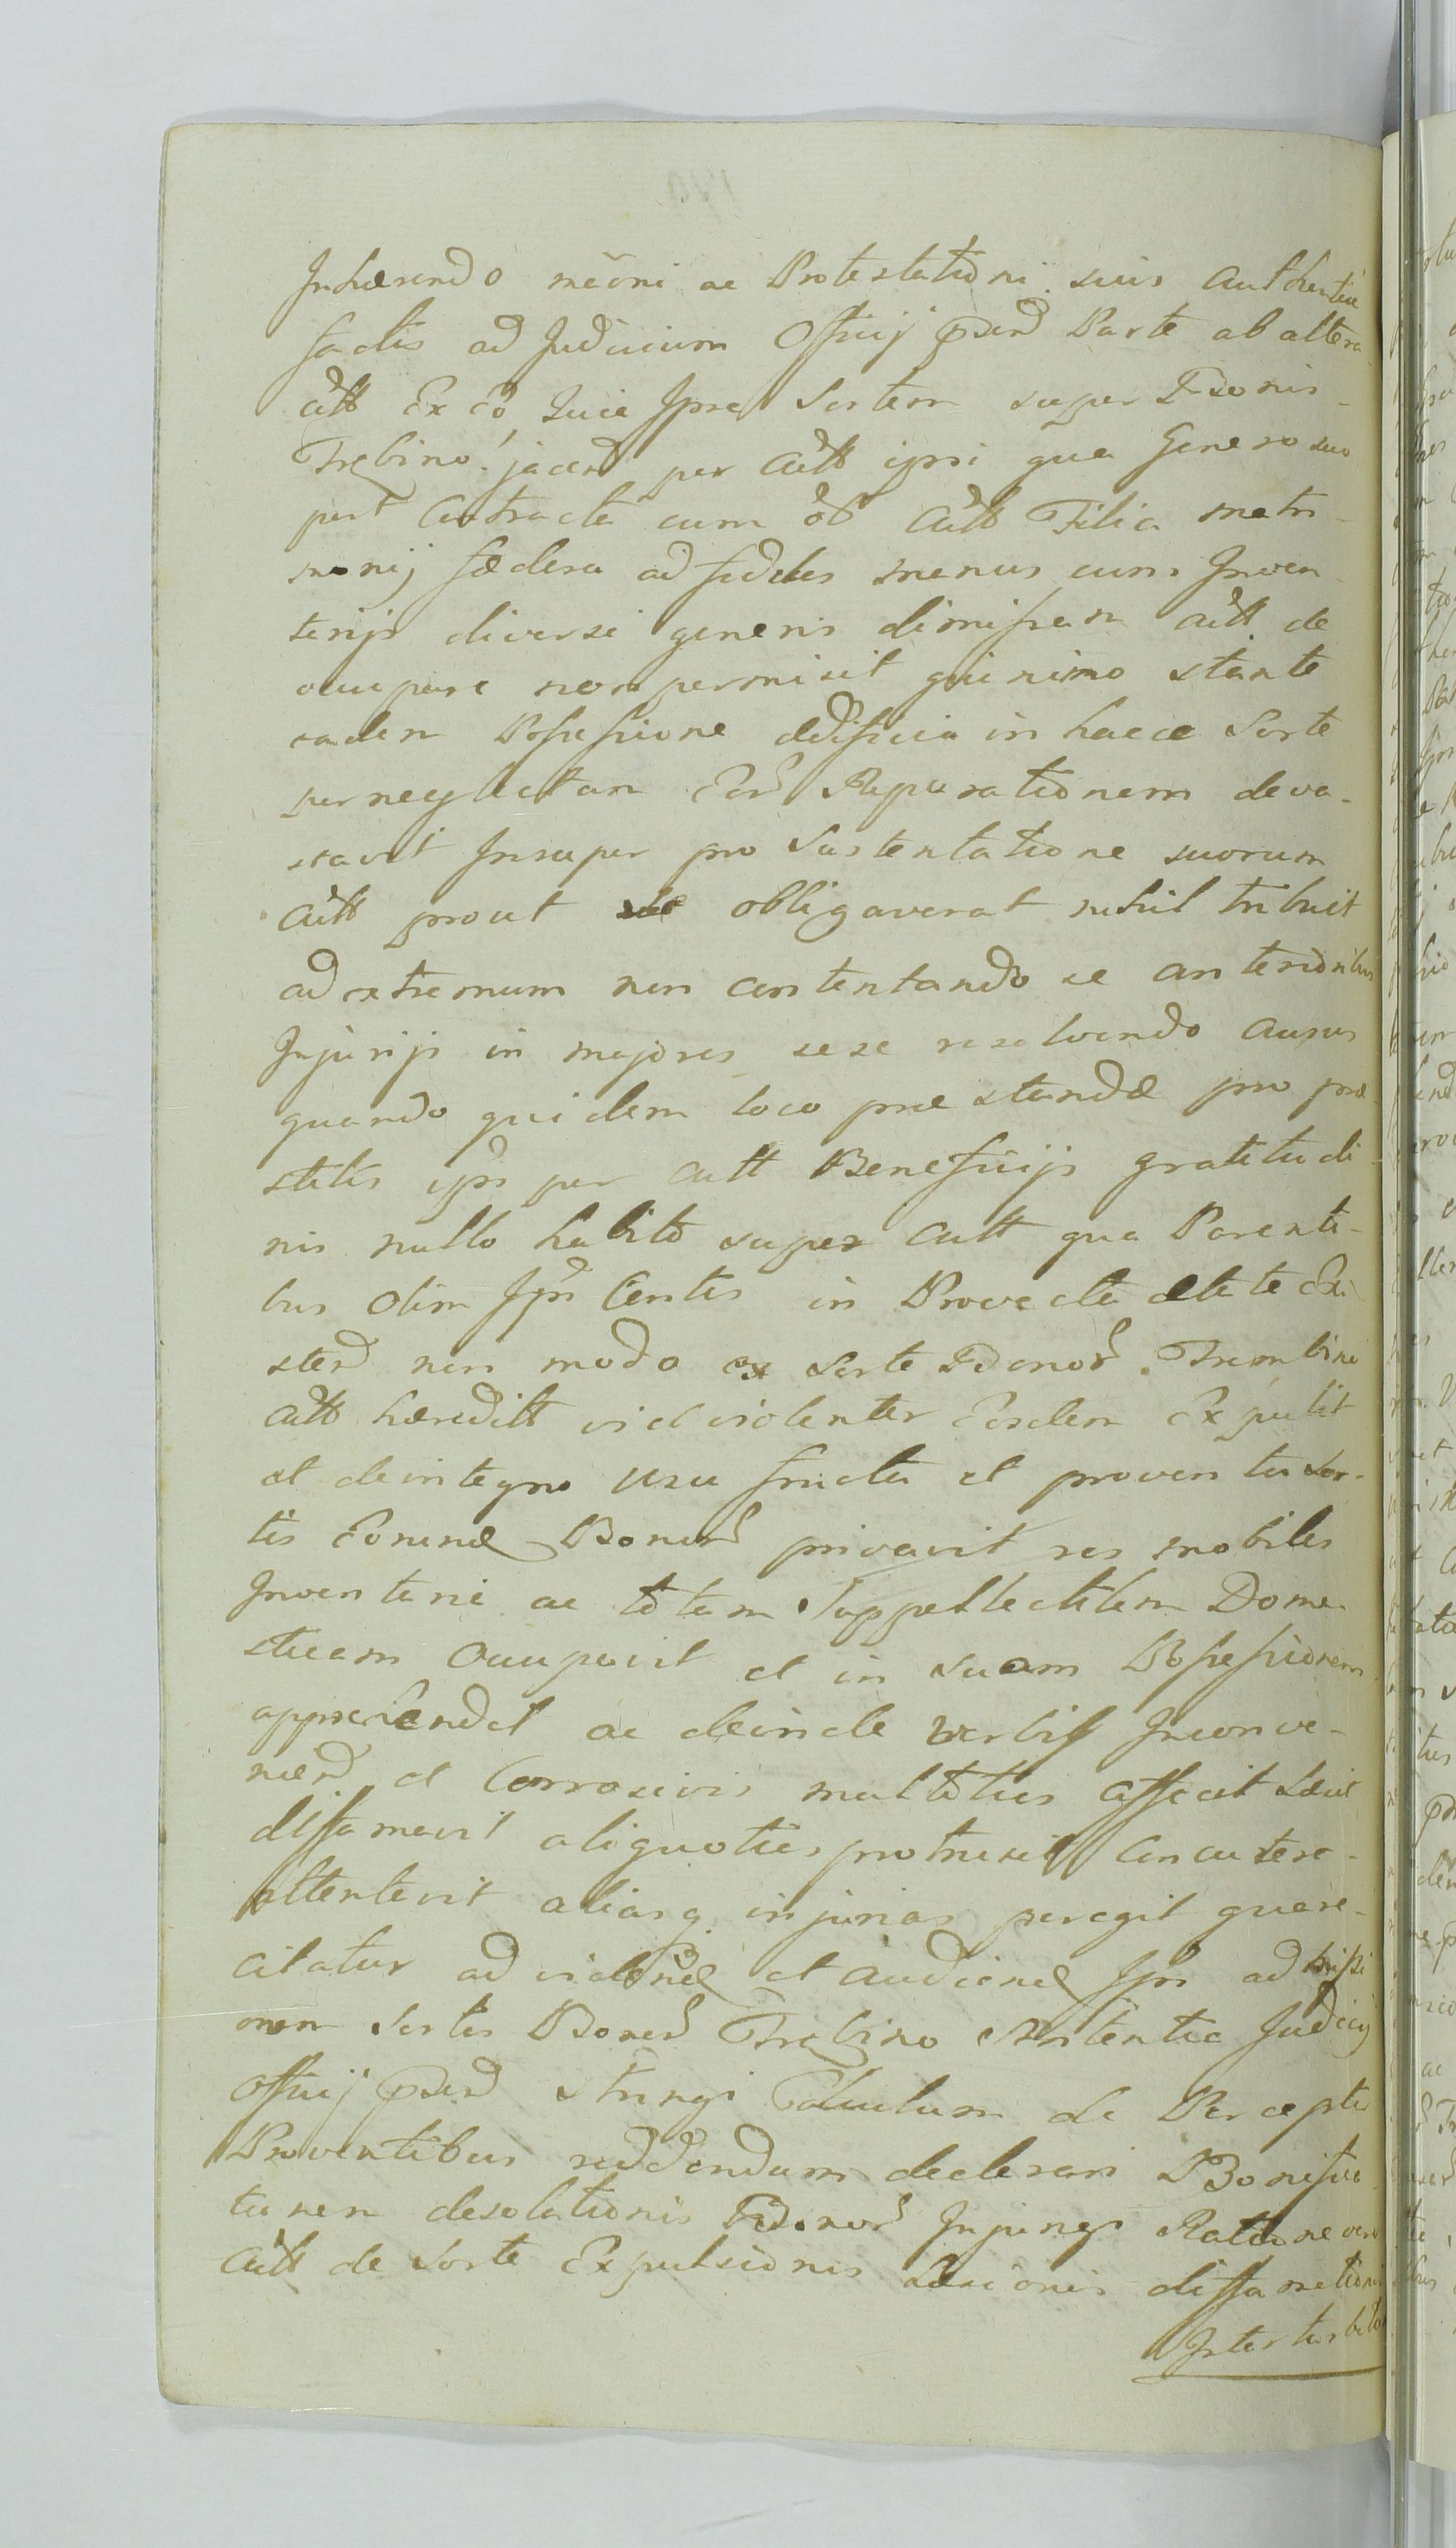 Inhærendo meōni ac Protestationi suis authentice
factis ad Judicium Officij pserd Parte ab altera
Citt Ex eo Quia Ipse Sortem super Bonis
Trębino jacend per Citt ipsi qua Genero suo
post Contracta cum Citt Filia matri-
monij fædera ad fideles manus cum Inven-
tarijs diversi generis dimissam Citt de
occupare non permisit quinimo stante
eadem Possessione ædificia in hacce Sorte
per neglectam Eor Reparationem deva-
stavit Insuper pro Sustentatione suorum
Citt prout se obligaverat nihil tribuit
ad extremum non contentando se anterioribus
Injurijs in majores sese resolvendo ausus
quando quidem loco præstandæ pro præ
stitis ipsi per Citt Beneficijs gratitudi-
nis nullo habito super Citt qua Parenti-
bus olim Ipsi in Provecta ætate Exi
stend non modo ex Sorte Bonor Trembino
Citt hæreditt vi et violenter Eosdem Expulit
et de integro usu fructu et proventu Sor-
tis Bonor privavit res mobiles
Inventarii ac totam Suppellectilem Dome
sticam occupavit et in suam Possessionem
apprehendit ac deinde verbis Inconve-
niend et Corrosivis multoties affecit Læsit
diffamavit aliquoties protrusit Concutere
attentavit aliasq injurias peregit quare
citatur ad videnđ et audienđ Ipsi
onem Sortis Bonor Trębino Sententia Judicij
Officij pserd stringi Calculum de Perceptis
Proventibus reddendum declarari Bonifica
tionem desolationis Bonor Injungi Ratione vero
Citt de Sorte Expulsionis Læsionis diffamationis